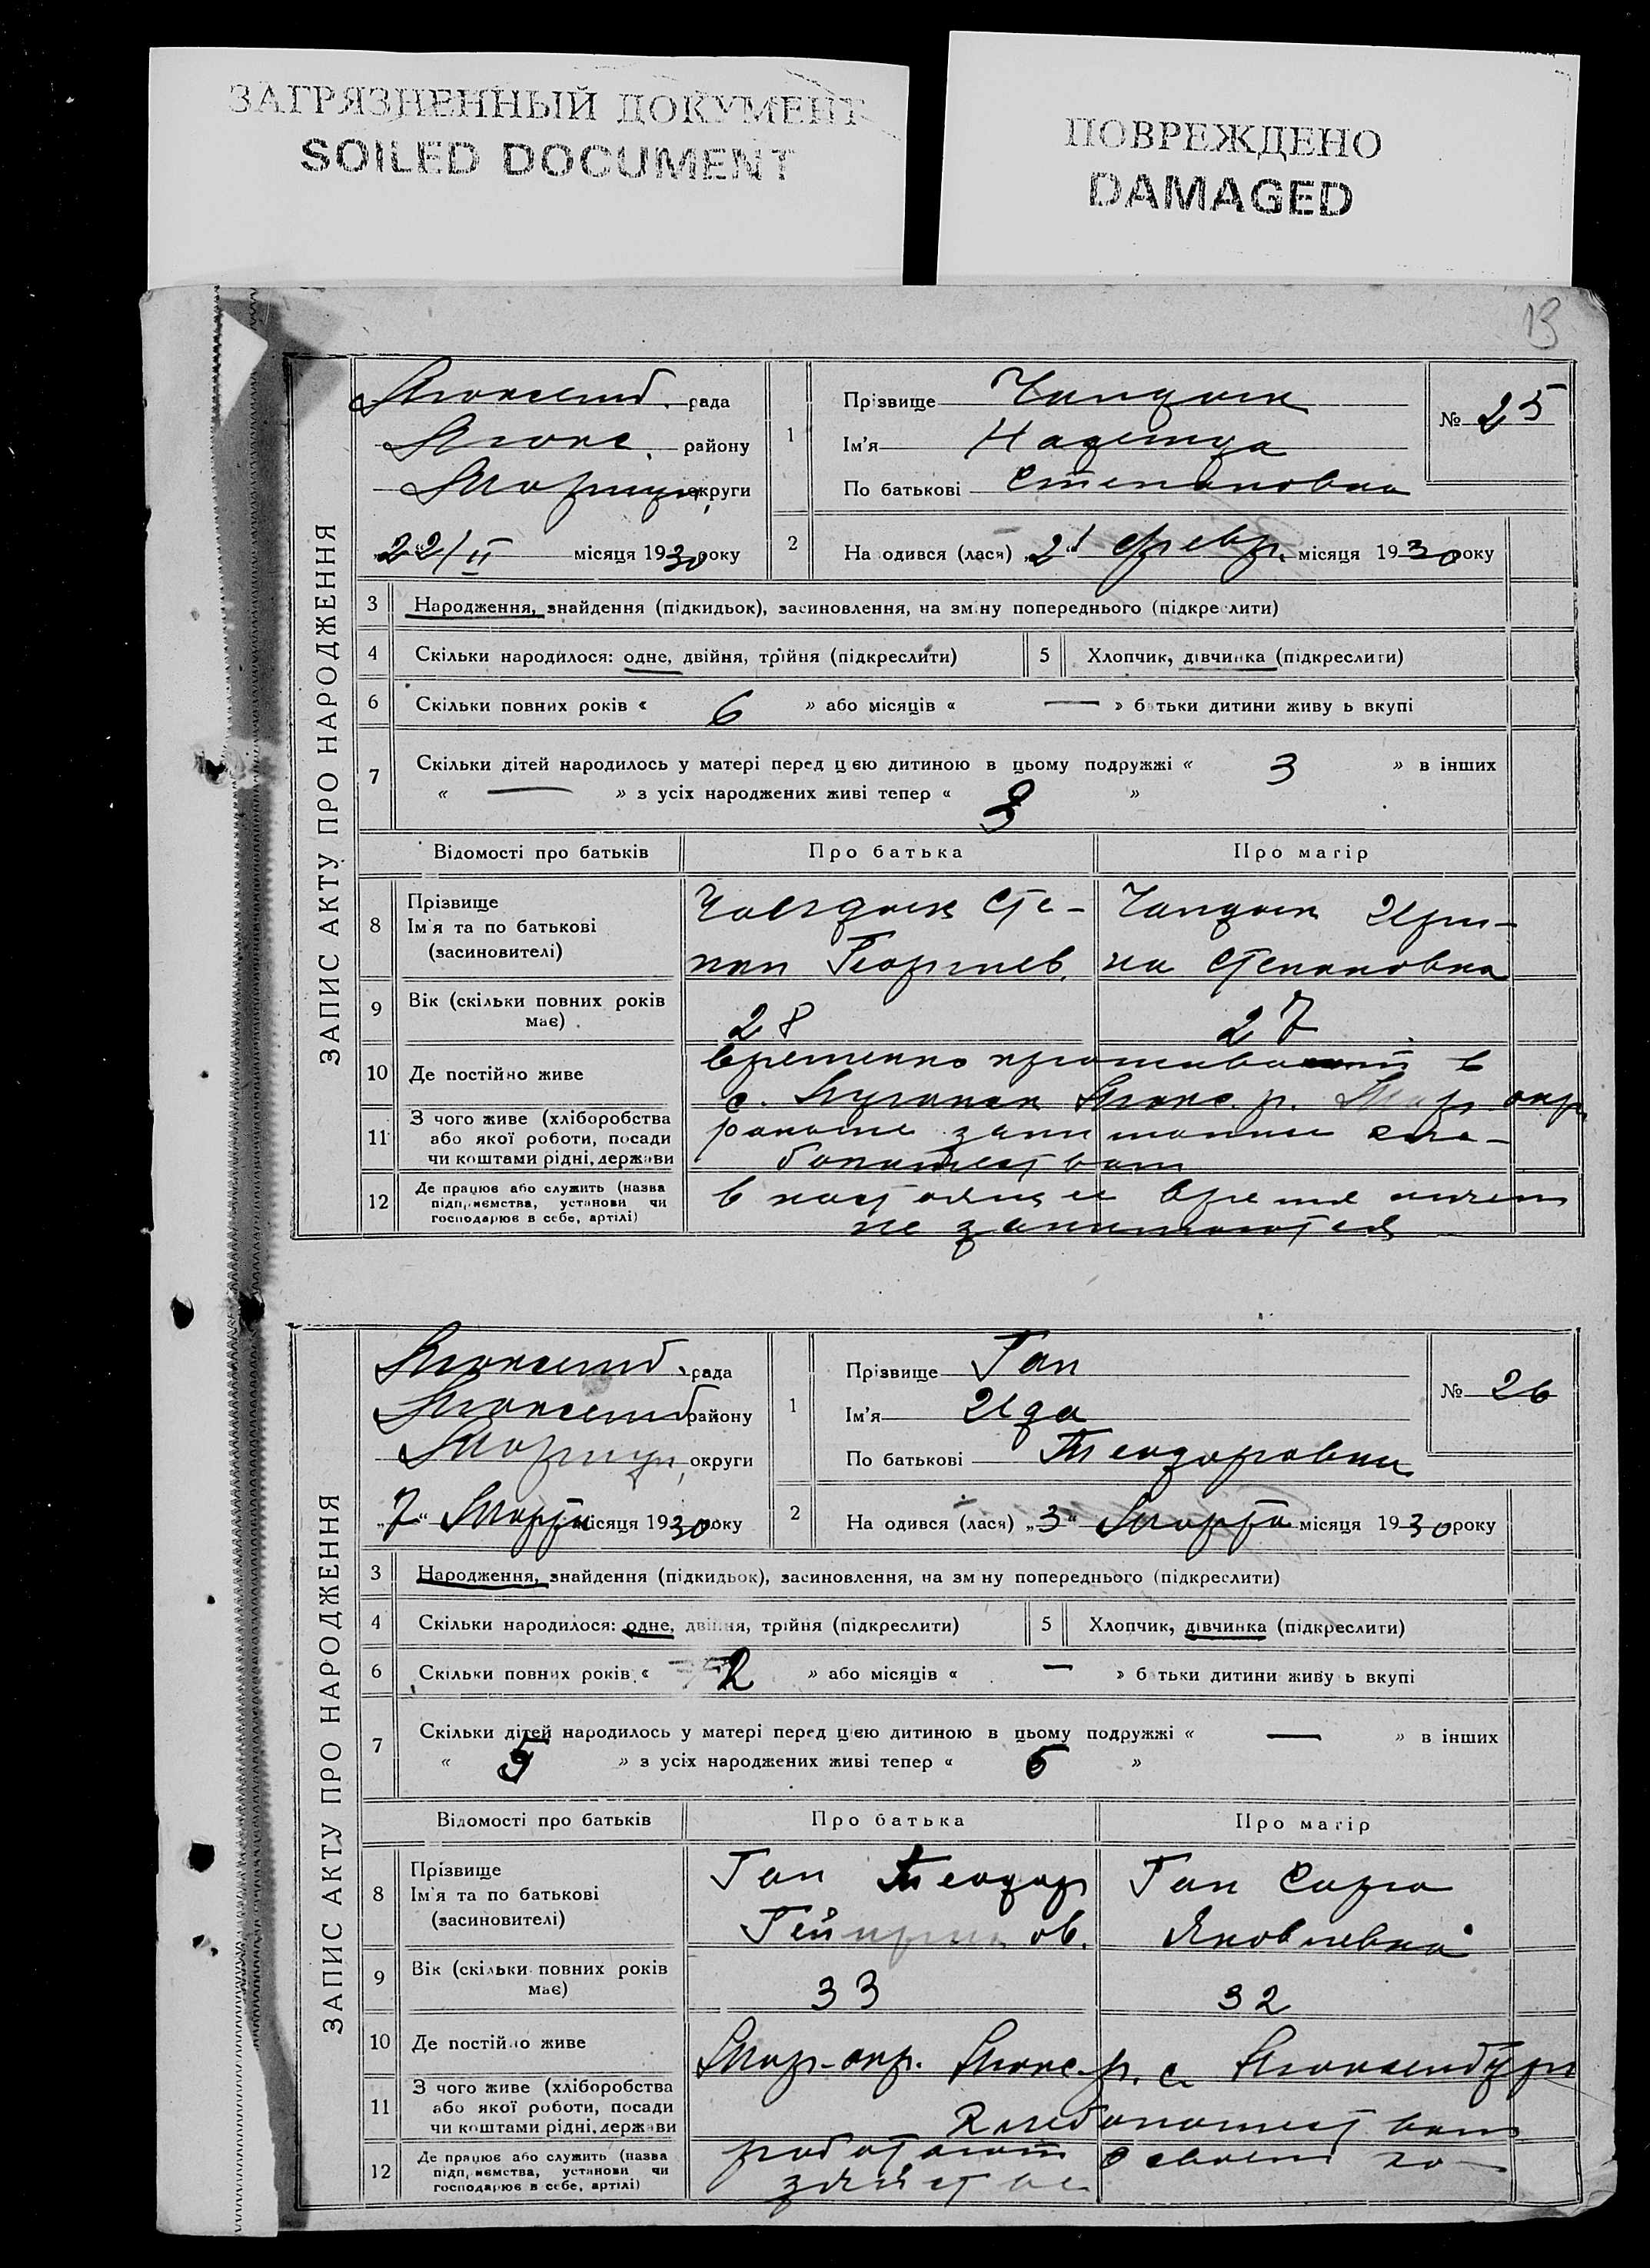 ЗАГРЯЗНЕННЫЙ ДОКУМЕНТ
SOILED DOCUMENT
ПОВРЕЖДЕНО
DAMAGED
13
ЗАПИС АКТУ ПРО НАРОДЖЕННЯ
рада
району
округи
22/II місяця 1930 року
1
Прізвище
Ім'я Надежда
По батькові Степановна
№ 25
2
На одився (лася) „21 февр. місяця 1930 року
3 Народження, знайдення (підкидьок), засиновлення, на зміну попереднього (підкреслити)
4 Скільки народилося: одне, двійня, трійня (підкреслити)
5 Хлопчик, дівчинка (підкреслити)
6 Скільки повних років « 6 » або місяців « — » батьки дитини живу ь вкупі
7 Скільки дітей народилось у матері перед цією дитиною в цьому подружжі « 3 » в інших
« — » з усіх народжених живі тепер « 3 »
Відомості про батьків Про батька Про матір
8 Прізвище
Ім'я та по батькові
(засиновителі)
Сте-
пан Георгиев.
Ири-
на Степановна
9 Вік (скільки повних років
має)
28
27
10 Де постійно живе
временно проживают в
с.
11 З чого живе (хліборобства
або якої роботи, посади
чи коштами рідні, держави
раньше занимались хле-
бопашеством
12 Де працює або служить (назва
підприємства, установи чи
господарює в себе, артілі)
в настоящее время ничем
не занимаются
ЗАПИС АКТУ ПРО НАРОДЖЕННЯ
рада
району
округи
„7" Марта місяця 1930 року
1
Прізвище Ган
Ім'я Ида
По батькові Теодоровна
№ 26
2
На одився (лася) „3" Марта місяця 1930 року
3 Народження, знайдення (підкидьок), засиновлення, на зм ну попереднього (підкреслити)
4 Скільки народилося: одне, двійня, трійня (підкреслити)
5 Хлопчик, дівчинка (підкреслити)
6 Скільки повних років « 2 » або місяців « — » батьки дитини живу ь вкупі
7 Скільки дітей народилось у матері перед цією дитиною в цьому подружжі « — » в інших
« 5 » з усіх народжених живі тепер « 6 »
Відомості про батьків Про батька Про матір
8 Прізвище
Ім'я та по батькові
(засиновителі)
Ган Теодор
Гейнрихов.
Ган Сара
Яковлевна
9 Вік (скільки повних років
має)
33
32
10 Де постійно живе
Мар. окр. Люкс. р. с. Люксембург
11 З чого живе (хліборобства
або якої роботи, посади
чи коштами рідні, держави
Хлебопашеством
12 Де працює або служить (назва
підприємства, установи чи
господарює в себе, артілі)
работают в своем хо-
зяйстве